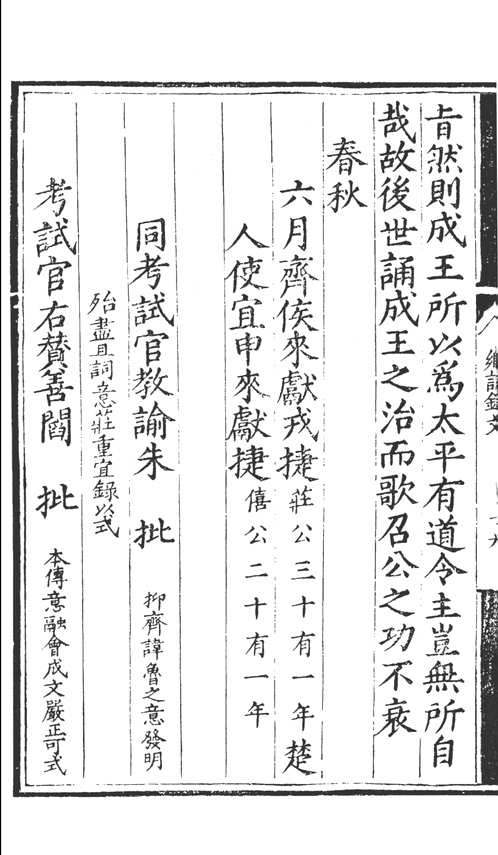 旨然則成王所以爲太平有道令主豈無所自
哉故後世誦成王之治而歌召公之功不衰
春秋
六月齊侯來獻戎捷莊公三十有一年楚
人使宜申來獻捷僖公二十有一年
同考試官教諭朱 批 抑齊諱魯之意發明
殆盡且詞意莊重宜錄以式
考試官右贊善閻 批 本傳意融會成文嚴正可式